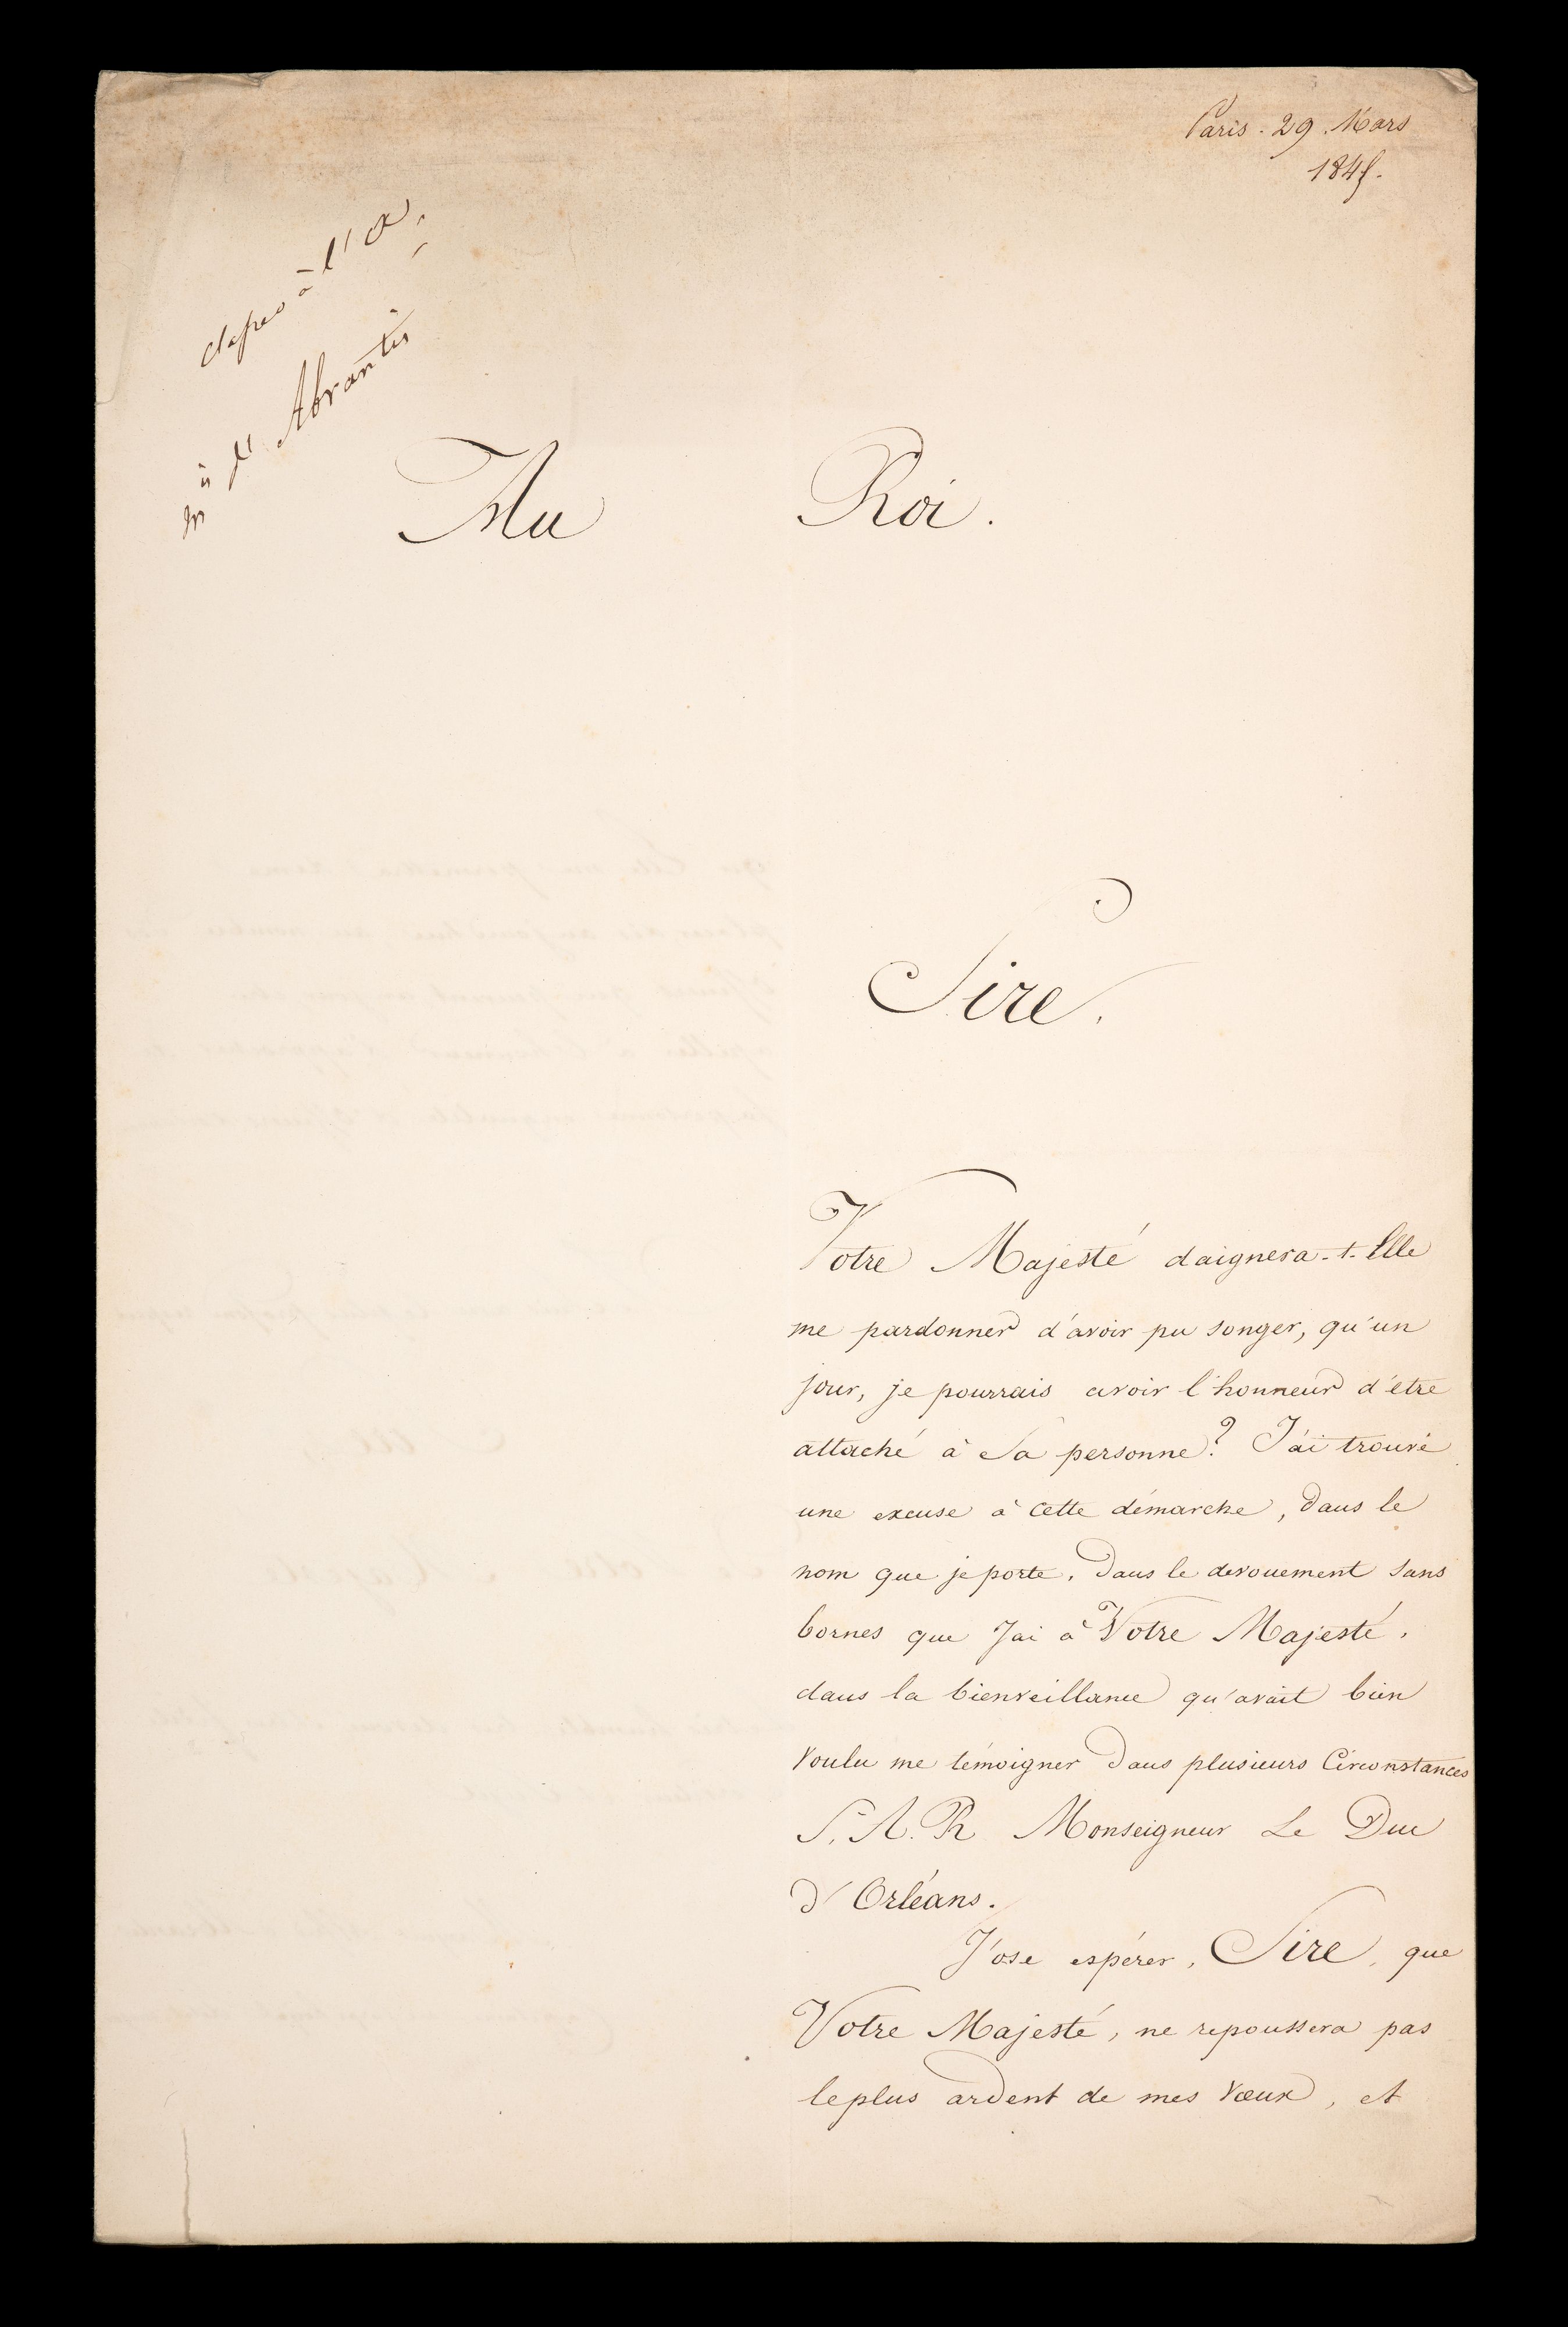 Paris. 29. Mars
184
à l'
d'Abrantès
Au Roi.
Sire.
Votre Majesté daignera-t-Elle
me pardonner d'avoir pu songer, qu'un
jour, je pourrais avoir l'honneur d'etre
attaché à Sa personne? J'ai trouvé
une excuse à cette démarche, dans le
nom que je porte, dans le devouement sans
bornes que J'ai à Votre Majesté,
dans la bienveillance qu'avait bien
voulu me témoigner dans plusieurs Circonstances
S. A. R Monseigneur Le Duc
d'Orléans.
J'ose espérer, Sire, que
Votre Majesté, ne repoussera pas
le plus ardent de mes vœux, et